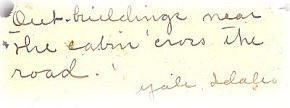 Out-buildings near
the cabin 'cross the
road.
Yale, Idaho